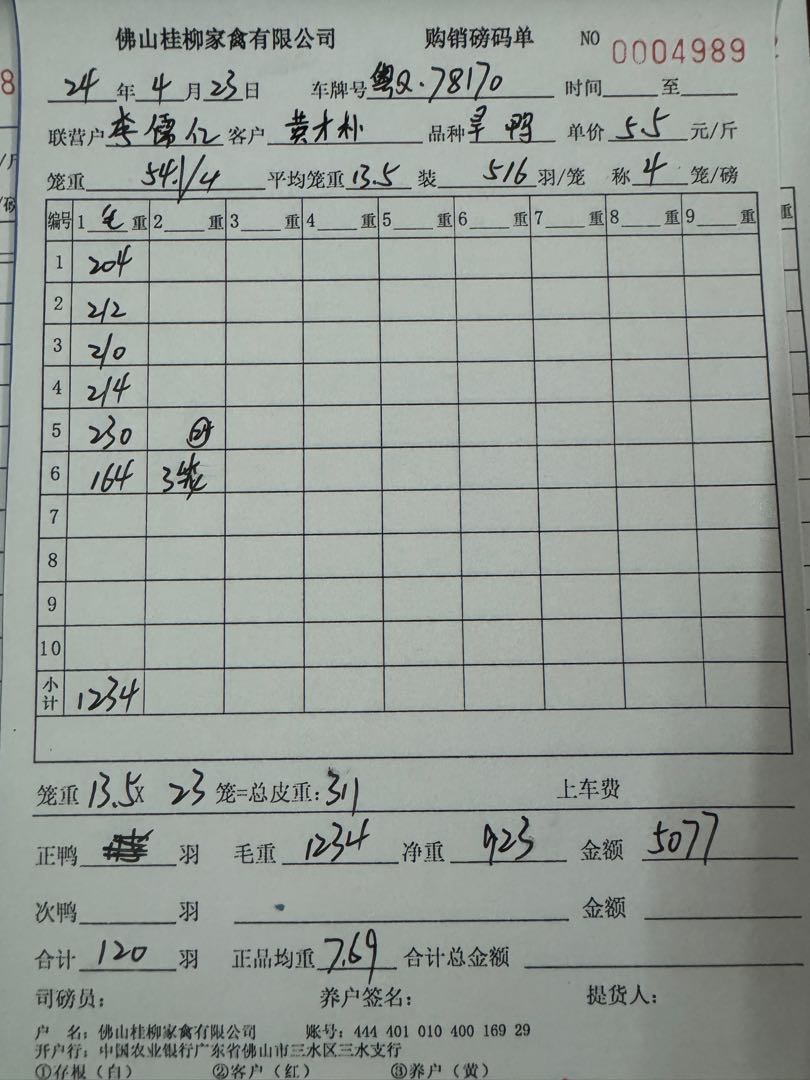 佛山桂柳家禽有限公司 购销磅码单 NO 0004989
24年4月23日 车牌号粤Q·78170 时间____至____
联营户李儒亿 客户黄才朴 品种旱鸭 单价5.5元/斤
笼重54.1/4 平均笼重13.5 装5/6羽/笼 称4笼/磅
编号 1毛重 2____重 3____重 4____重 5____重 6____重 7____重 8____重 9____重
1 204
2 212
3 210
4 214
5 230
6 164 3笼
7
8
9
10
小计 1234
笼重13.5X 23笼=总皮重:311 上车费
正鸭____羽 毛重1234 净重923 金额5077
次鸭____羽 金额____
合计120羽 正品均重7.69 合计总金额____
司磅员: 养户签名: 提货人:
户 名:佛山桂柳家禽有限公司 账号:444 401 010 400 169 29
开户行:中国农业银行广东省佛山市三水区三水支行
①存根(白) ②客户(红) ③养户(黄)